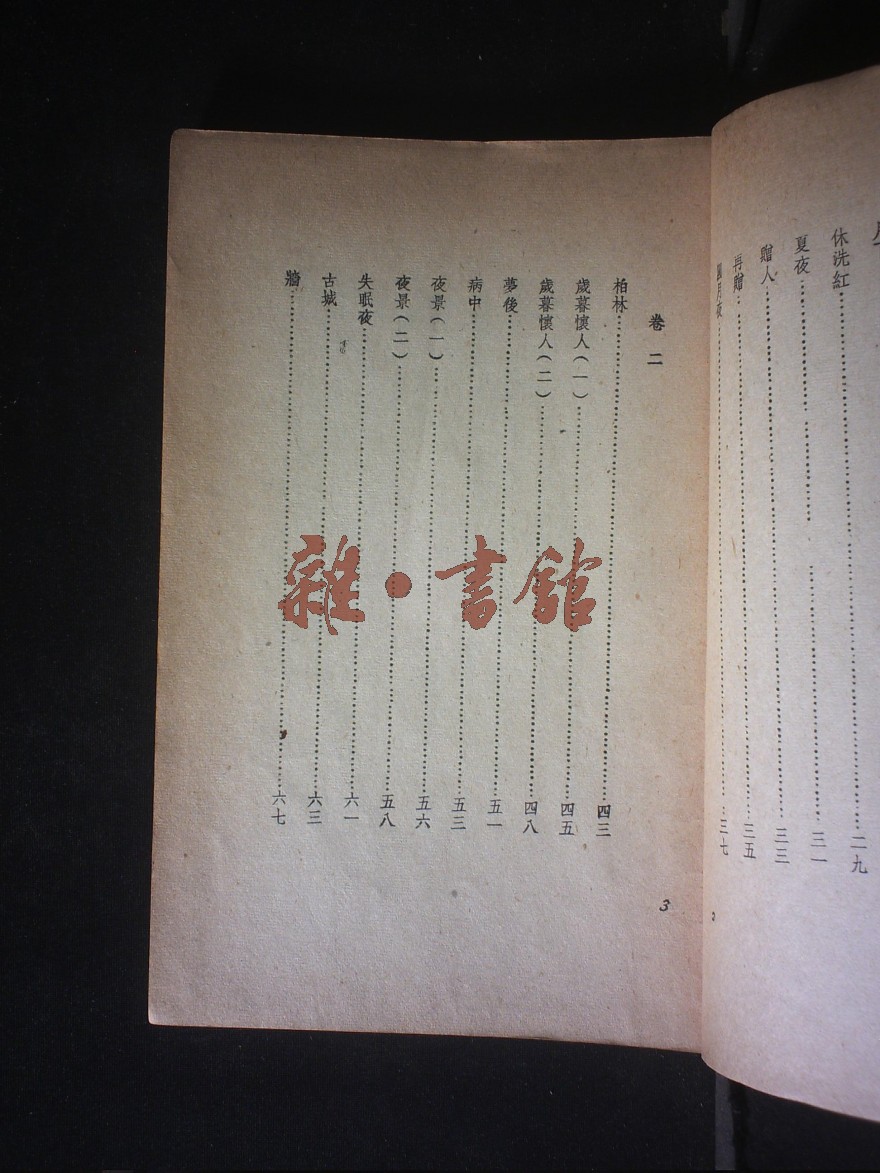 休洗紅……二九
夏夜……三一
贈人……三三
再贈……三五
月夜……三七
2
卷二
柏林……四三
歲暮懷人（一）……四五
歲暮懷人（二）……四八
夢後……五一
病中……五三
夜景（一）……五六
夜景（二）……五八
失眠夜……六一
古城……六三
牆……六七
3
雜•書館